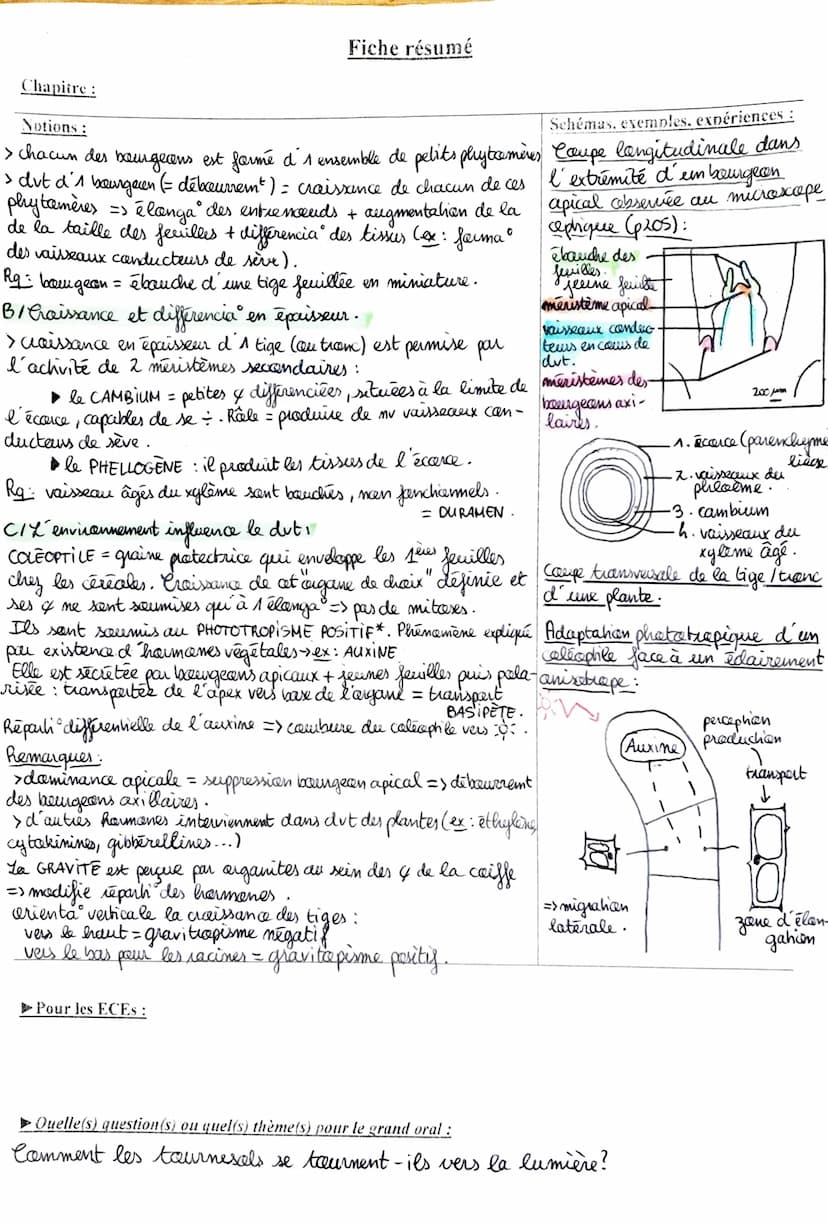 Fiche résumé
Chapitre :
Notions :
> chacun des bourgeons est formé d'1 ensemble de petits phytomères
> dvt d'1 bourgeon (= débourremt) = croissance de chacun de ces
phytomères => élonga° des entrenoeuds + augmentation de la
de la taille des feuilles + différencia° des tissus (ex : forma°
des vaisseaux conducteurs de sève).
Rq : bourgeon = ébauche d'une tige feuillée en miniature.
B/ Croissance et différencia° en épaisseur.
> croissance en épaisseur d'1 tige (ou tronc) est permise par
l'activité de 2 méristèmes secondaires :
▶ le CAMBIUM = petites ¢ différenciées, situées à la limite de
l'écorce, capables de se ÷. Rôle = produire de nv vaisseaux con-
ducteurs de sève.
▶ le PHELLOGÈNE : il produit les tissus de l'écorce.
Rq : vaisseau âgés du xylème sont bouchés, non fonctionnels.
= DURAMEN.
C/ L'environnement influence le dvt :
COLÉOPTILE = graine protectrice qui enveloppe les 1ères feuilles
chez les céréales. Croissance de cet "organe de choix" définie et
ses ¢ ne sont soumises qu'à 1 élonga° => pas de mitoses.
Ils sont soumis au PHOTOTROPISME POSITIF*. Phénomène expliqué
par existence d'hormones végétales → ex : AUXINE
Elle est sécrétée par bourgeons apicaux + jeunes feuilles puis pola-
risée : transportée de l'apex vers base de l'organe = transport
BASIPÈTE.
Réparti° différentielle de l'auxine => courbure du coléoptile vers ☼.
Remarques :
> dominance apicale = suppression bourgeon apical => débourremt
des bourgeons axillaires.
> d'autres hormones interviennent dans dvt des plantes (ex : éthylène,
cytokinines, gibbérellines...)
La GRAVITÉ est perçue par organites au sein des ¢ de la coiffe
=> modifie réparti° des hormones.
orienta° verticale la croissance des tiges :
vers le haut = gravitropisme négatif
vers le bas pour les racines = gravitropisme positif.
Schémas, exemples, expériences :
Coupe longitudinale dans
l'extrémité d'un bourgeon
apical observée au microscope
optique (p205) :
ébauche des
feuilles.
jeune feuille
méristème apical
vaisseaux conduc-
teurs en cours de
dvt.
méristèmes des
bourgeons axi-
laires.
200 µm
1. écorce (parenchyme
liège
2. vaisseaux du
phloème.
3. cambium
4. vaisseaux du
xylème âgé.
Coupe transversale de la tige/tronc
d'une plante.
Adaptation phototropique d'un
coléoptile face à un éclairement
anisotrope :
Auxine
perception
production
transport
=> migration
latérale.
zone d'élon-
gation
▶ Pour les ECEs :
▶ Quelle(s) question(s) ou quel(s) thème(s) pour le grand oral :
Comment les tournesols se tournent-ils vers la lumière ?